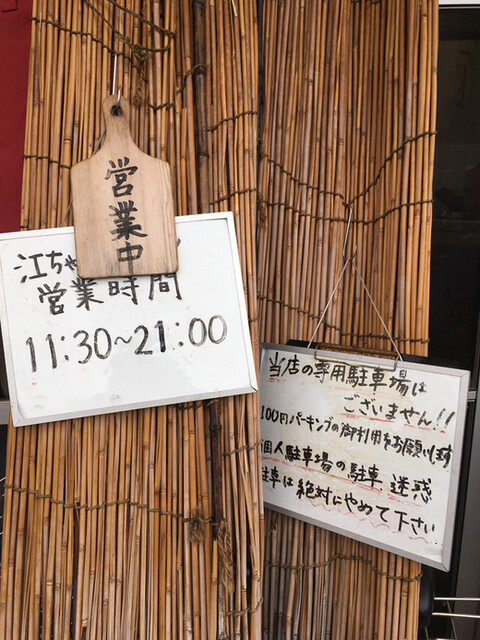 営業中
江ちゃ
営業時間
11:30~21:00
当店の専用駐車場は
ございません!!
100円パーキングの御利用をお願いします
個人駐車場の駐車 迷惑
駐車は絶対にやめて下さい